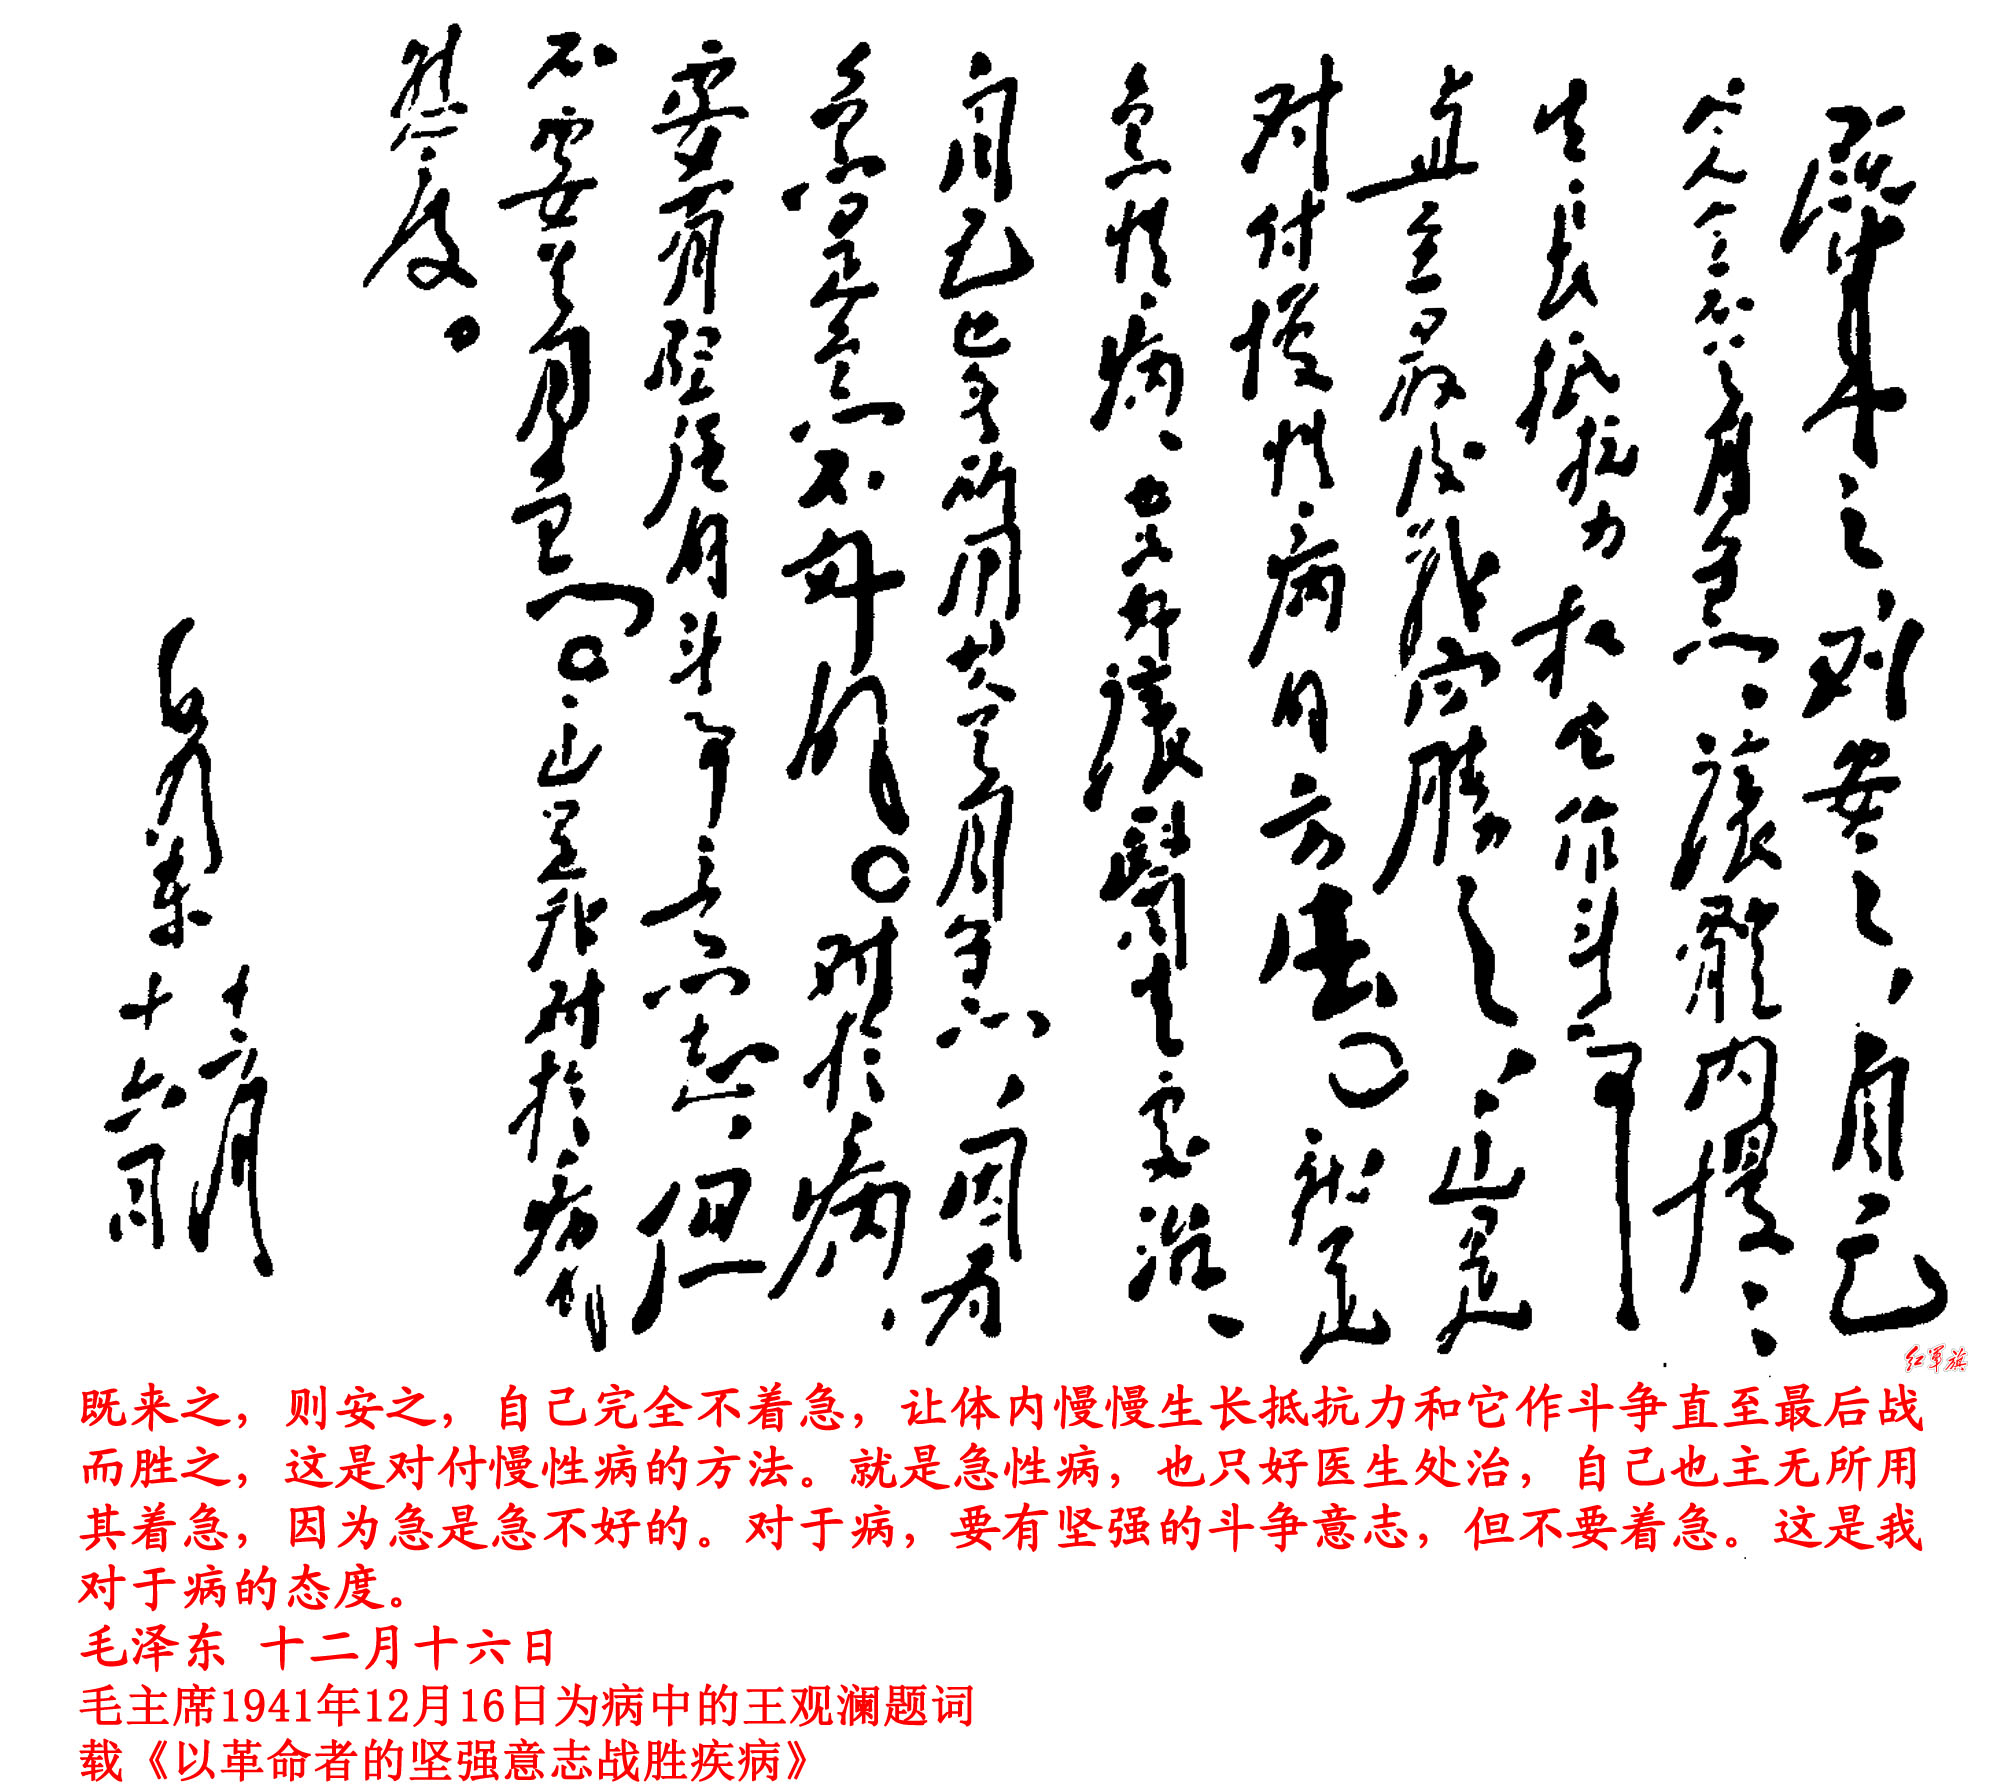 既來之、则安之，自己
完全不着急、讓體内慢慢
生長抵抗力和它作斗争
直至最后战而勝之、这是
对付慢性病的方法。就是
急性病、也只好讓醫生處治、
自己也无所用其着急，因为
急是急不好的。对於病、
要有坚强的斗争意志，但
不要着急。这是我对於病的
態度。
毛泽东
十二月
十六日
红军旗
既来之，则安之，自己完全不着急，让体内慢慢生长抵抗力和它作斗争直至最后战
而胜之，这是对付慢性病的方法。就是急性病，也只好医生处治，自己也主无所用
其着急，因为急是急不好的。对于病，要有坚强的斗争意志，但不要着急。这是我
对于病的态度。
毛泽东 十二月十六日
毛主席1941年12月16日为病中的王观澜题词
载《以革命者的坚强意志战胜疾病》